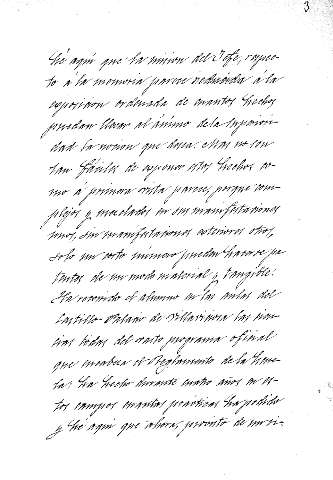 3
hé aquí que la mision del Jefe, respec-
to á la memoria parece reducida á la
exposicion ordenada de cuantos hechos
puedan llevar al ánimo de la Superiori-
dad la nocion que desea: Mas no son
tan fáciles de exponer estos hechos co-
mo á primera vista parece, porque com-
plejos y mezclados en sus manifestaciones
unos, sin manifestaciones exteriores otros,
solo un corto número pueden hacerse pa-
tentes de un modo material y tangible:
Ha recorrido el alumno en las aulas del
Castillo-Palacio de Villaviciosa las ma-
terias todas del vasto programa oficial
que encabeza el Reglamento de la Escue-
la: ha hecho durante cuatro años en es-
tos campos cuantas prácticas ha podido
y hé aquí que ahora, provisto de un tí-